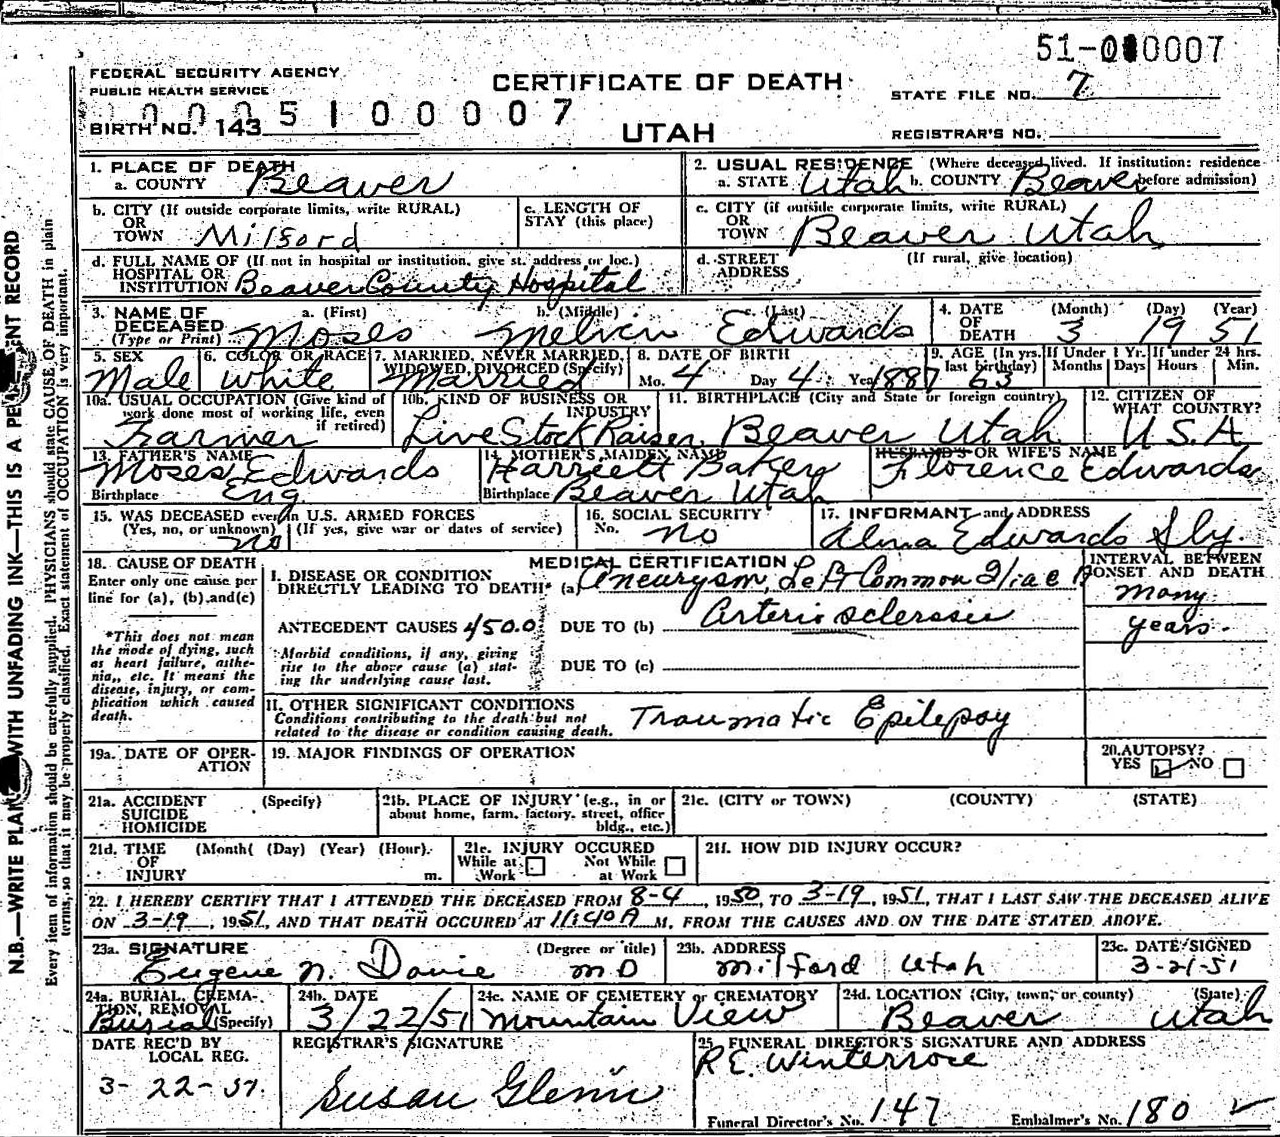 51-000007
FEDERAL SECURITY AGENCY
PUBLIC HEALTH SERVICE
CERTIFICATE OF DEATH
STATE FILE NO. 7
5 1 0 0 0 0 7
BIRTH NO. 143
UTAH
REGISTRAR'S NO.
1. PLACE OF DEATH
a. COUNTY Beaver
2. USUAL RESIDENCE (Where deceased lived. If institution: residence before admission)
a. STATE Utah b. COUNTY Beaver
b. CITY (If outside corporate limits, write RURAL)
OR
TOWN Milford
c. LENGTH OF
STAY (this place)
c. CITY (if outside corporate limits, write RURAL)
OR
TOWN Beaver Utah
d. FULL NAME OF (If not in hospital or institution, give st. address or loc.)
HOSPITAL OR
INSTITUTION Beaver County Hospital
d. STREET (If rural, give location)
ADDRESS
3. NAME OF DECEASED (Type or Print)
a. (First) b. (Middle) c. (Last)
Moses Melvin Edwards
4. DATE OF DEATH (Month) (Day) (Year)
3 19 51
5. SEX
Male
6. COLOR OR RACE
White
7. MARRIED, NEVER MARRIED, WIDOWED, DIVORCED (Specify)
Married
8. DATE OF BIRTH
Mo. 4 Day 4 Year 1887
9. AGE (In yrs. last birthday) 63
If Under 1 Yr. Months Days
If under 24 hrs. Hours Min.
10a. USUAL OCCUPATION (Give kind of work done most of working life, even if retired)
Farmer
10b. KIND OF BUSINESS OR INDUSTRY
Live Stock Raiser
11. BIRTHPLACE (City and State or foreign country)
Beaver Utah
12. CITIZEN OF WHAT COUNTRY?
U S A
13. FATHER'S NAME
Moses Edwards
Birthplace Eng.
14. MOTHER'S MAIDEN NAME
Harriett Baker
Birthplace Beaver Utah
HUSBAND'S OR WIFE'S NAME
Florence Edwards
15. WAS DECEASED ever in U.S. ARMED FORCES
(Yes, no, or unknown) (If yes, give war or dates of service)
no
16. SOCIAL SECURITY
No. no
17. INFORMANT and ADDRESS
Alma Edwards Sly.
18. CAUSE OF DEATH
Enter only one cause per line for (a), (b) and (c)
*This does not mean the mode of dying, such as heart failure, asthenia, etc. It means the disease, injury, or complication which caused death.
MEDICAL CERTIFICATION
I. DISEASE OR CONDITION
DIRECTLY LEADING TO DEATH* (a) Aneurysm, Left Common Iliac A
ANTECEDENT CAUSES 450.0 DUE TO (b) arterio sclerosis
Morbid conditions, if any, giving rise to the above cause (a) stating the underlying cause last.
DUE TO (c)
INTERVAL BETWEEN ONSET AND DEATH
many
years.
II. OTHER SIGNIFICANT CONDITIONS
Conditions contributing to the death but not related to the disease or condition causing death.
Traumatic Epilepsy
19a. DATE OF OPERATION
19. MAJOR FINDINGS OF OPERATION
20. AUTOPSY?
YES NO
21a. ACCIDENT (Specify)
SUICIDE
HOMICIDE
21b. PLACE OF INJURY (e.g., in or about home, farm, factory, street, office bldg., etc.)
21c. (CITY or TOWN) (COUNTY) (STATE)
21d. TIME (Month( (Day) (Year) (Hour).
OF
INJURY m.
21e. INJURY OCCURED
While at Work Not While at Work
21f. HOW DID INJURY OCCUR?
22. I HEREBY CERTIFY THAT I ATTENDED THE DECEASED FROM 8-4, 1950, TO 3-19, 1951, THAT I LAST SAW THE DECEASED ALIVE
ON 3-19, 1951, AND THAT DEATH OCCURED AT 11:40 A M, FROM THE CAUSES AND ON THE DATE STATED ABOVE.
23a. SIGNATURE (Degree or title)
Eugene N. Davie MD
23b. ADDRESS
Milford Utah
23c. DATE SIGNED
3-21-51
24a. BURIAL, CREMATION, REMOVAL (Specify)
Burial
24b. DATE
3/22/51
24c. NAME OF CEMETERY or CREMATORY
Mountain View
24d. LOCATION (City, town, or county) (State)
Beaver Utah
DATE REC'D BY LOCAL REG.
3-22-51.
REGISTRAR'S SIGNATURE
Susan Glenn
25. FUNERAL DIRECTOR'S SIGNATURE AND ADDRESS
R.E. Winterrose
Funeral Director's No. 147 Embalmer's No. 180
N.B.—WRITE PLAINLY WITH UNFADING INK—THIS IS A PERMANENT RECORD
Every item of information should be carefully supplied. PHYSICIANS should state CAUSE OF DEATH in plain
terms, so that it may be properly classified. Exact statement of OCCUPATION is very important.